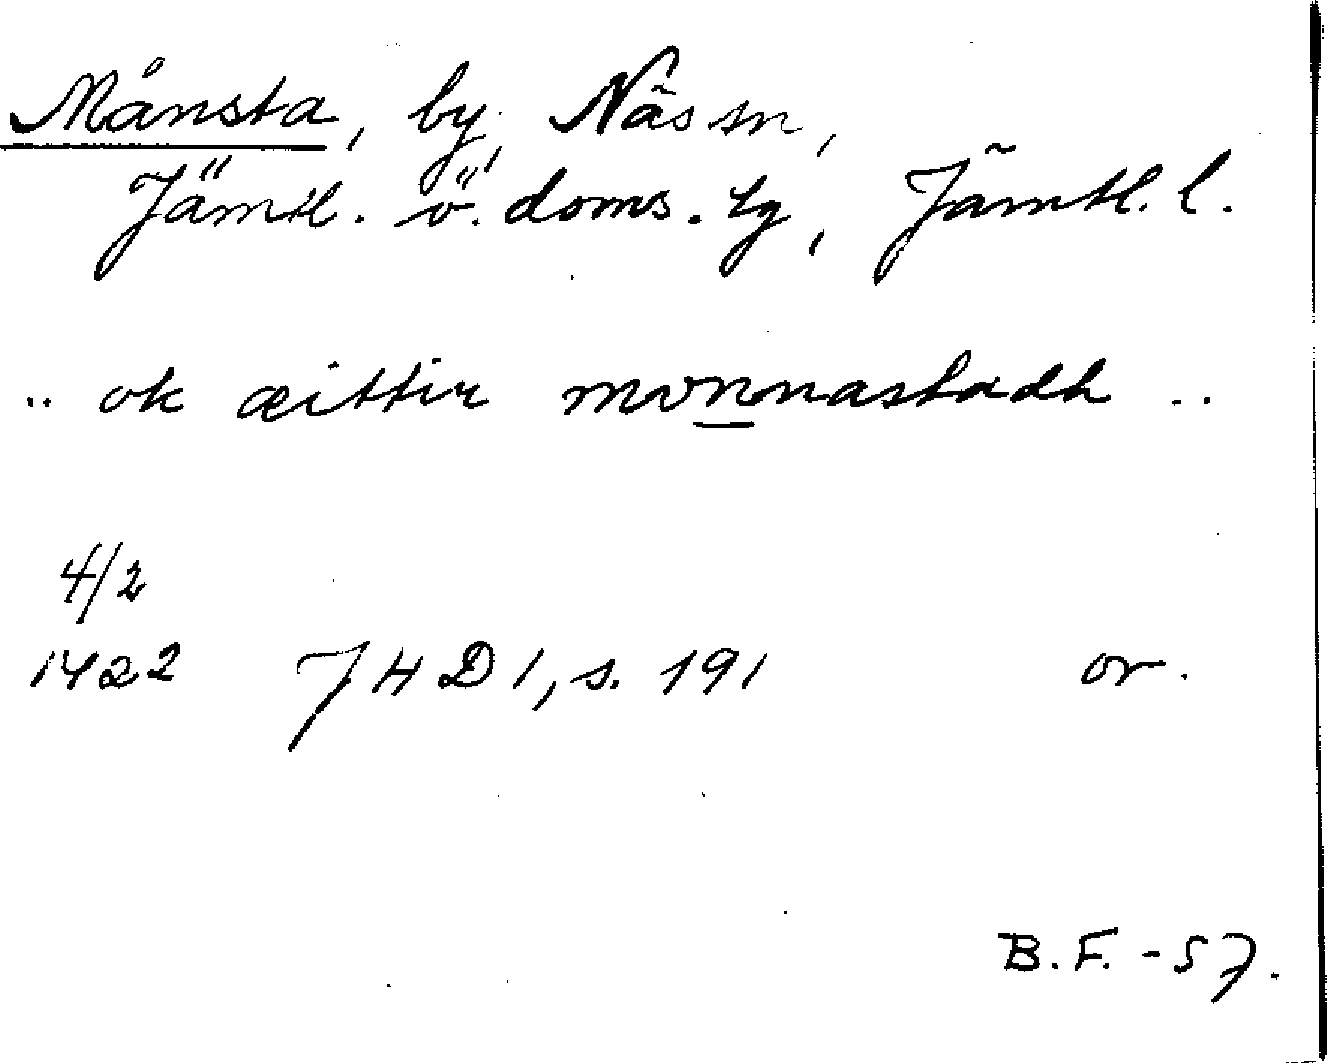 Månsta, by, Näs sn,
Jämtl. ö. doms. tg, Jämtl. l.
.. ok æittir monnastadh ..
4/2
1422 JHD 1, s. 191 or.
B.F. -57.